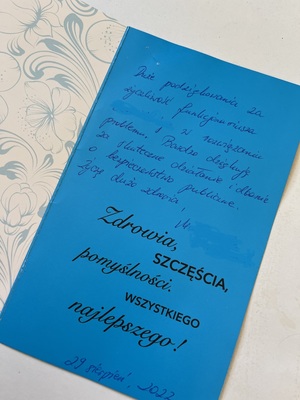 Duże podziękowania za
życzliwość funkcjonariusza
w rozwiązaniu
problemu. Bardzo dziękuję
za skuteczne działanie i dbanie
o bezpieczeństwo publiczne.
Życzę dużo zdrowia!
Zdrowia,
SZCZĘŚCIA,
pomyślności.
WSZYSTKIEGO
najlepszego!
29 sierpień, 2022